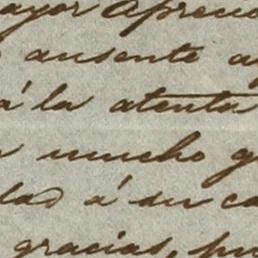 ayor Aprecio
ausente a
á la atenta
mucho g
das á su ca
gracias, pu